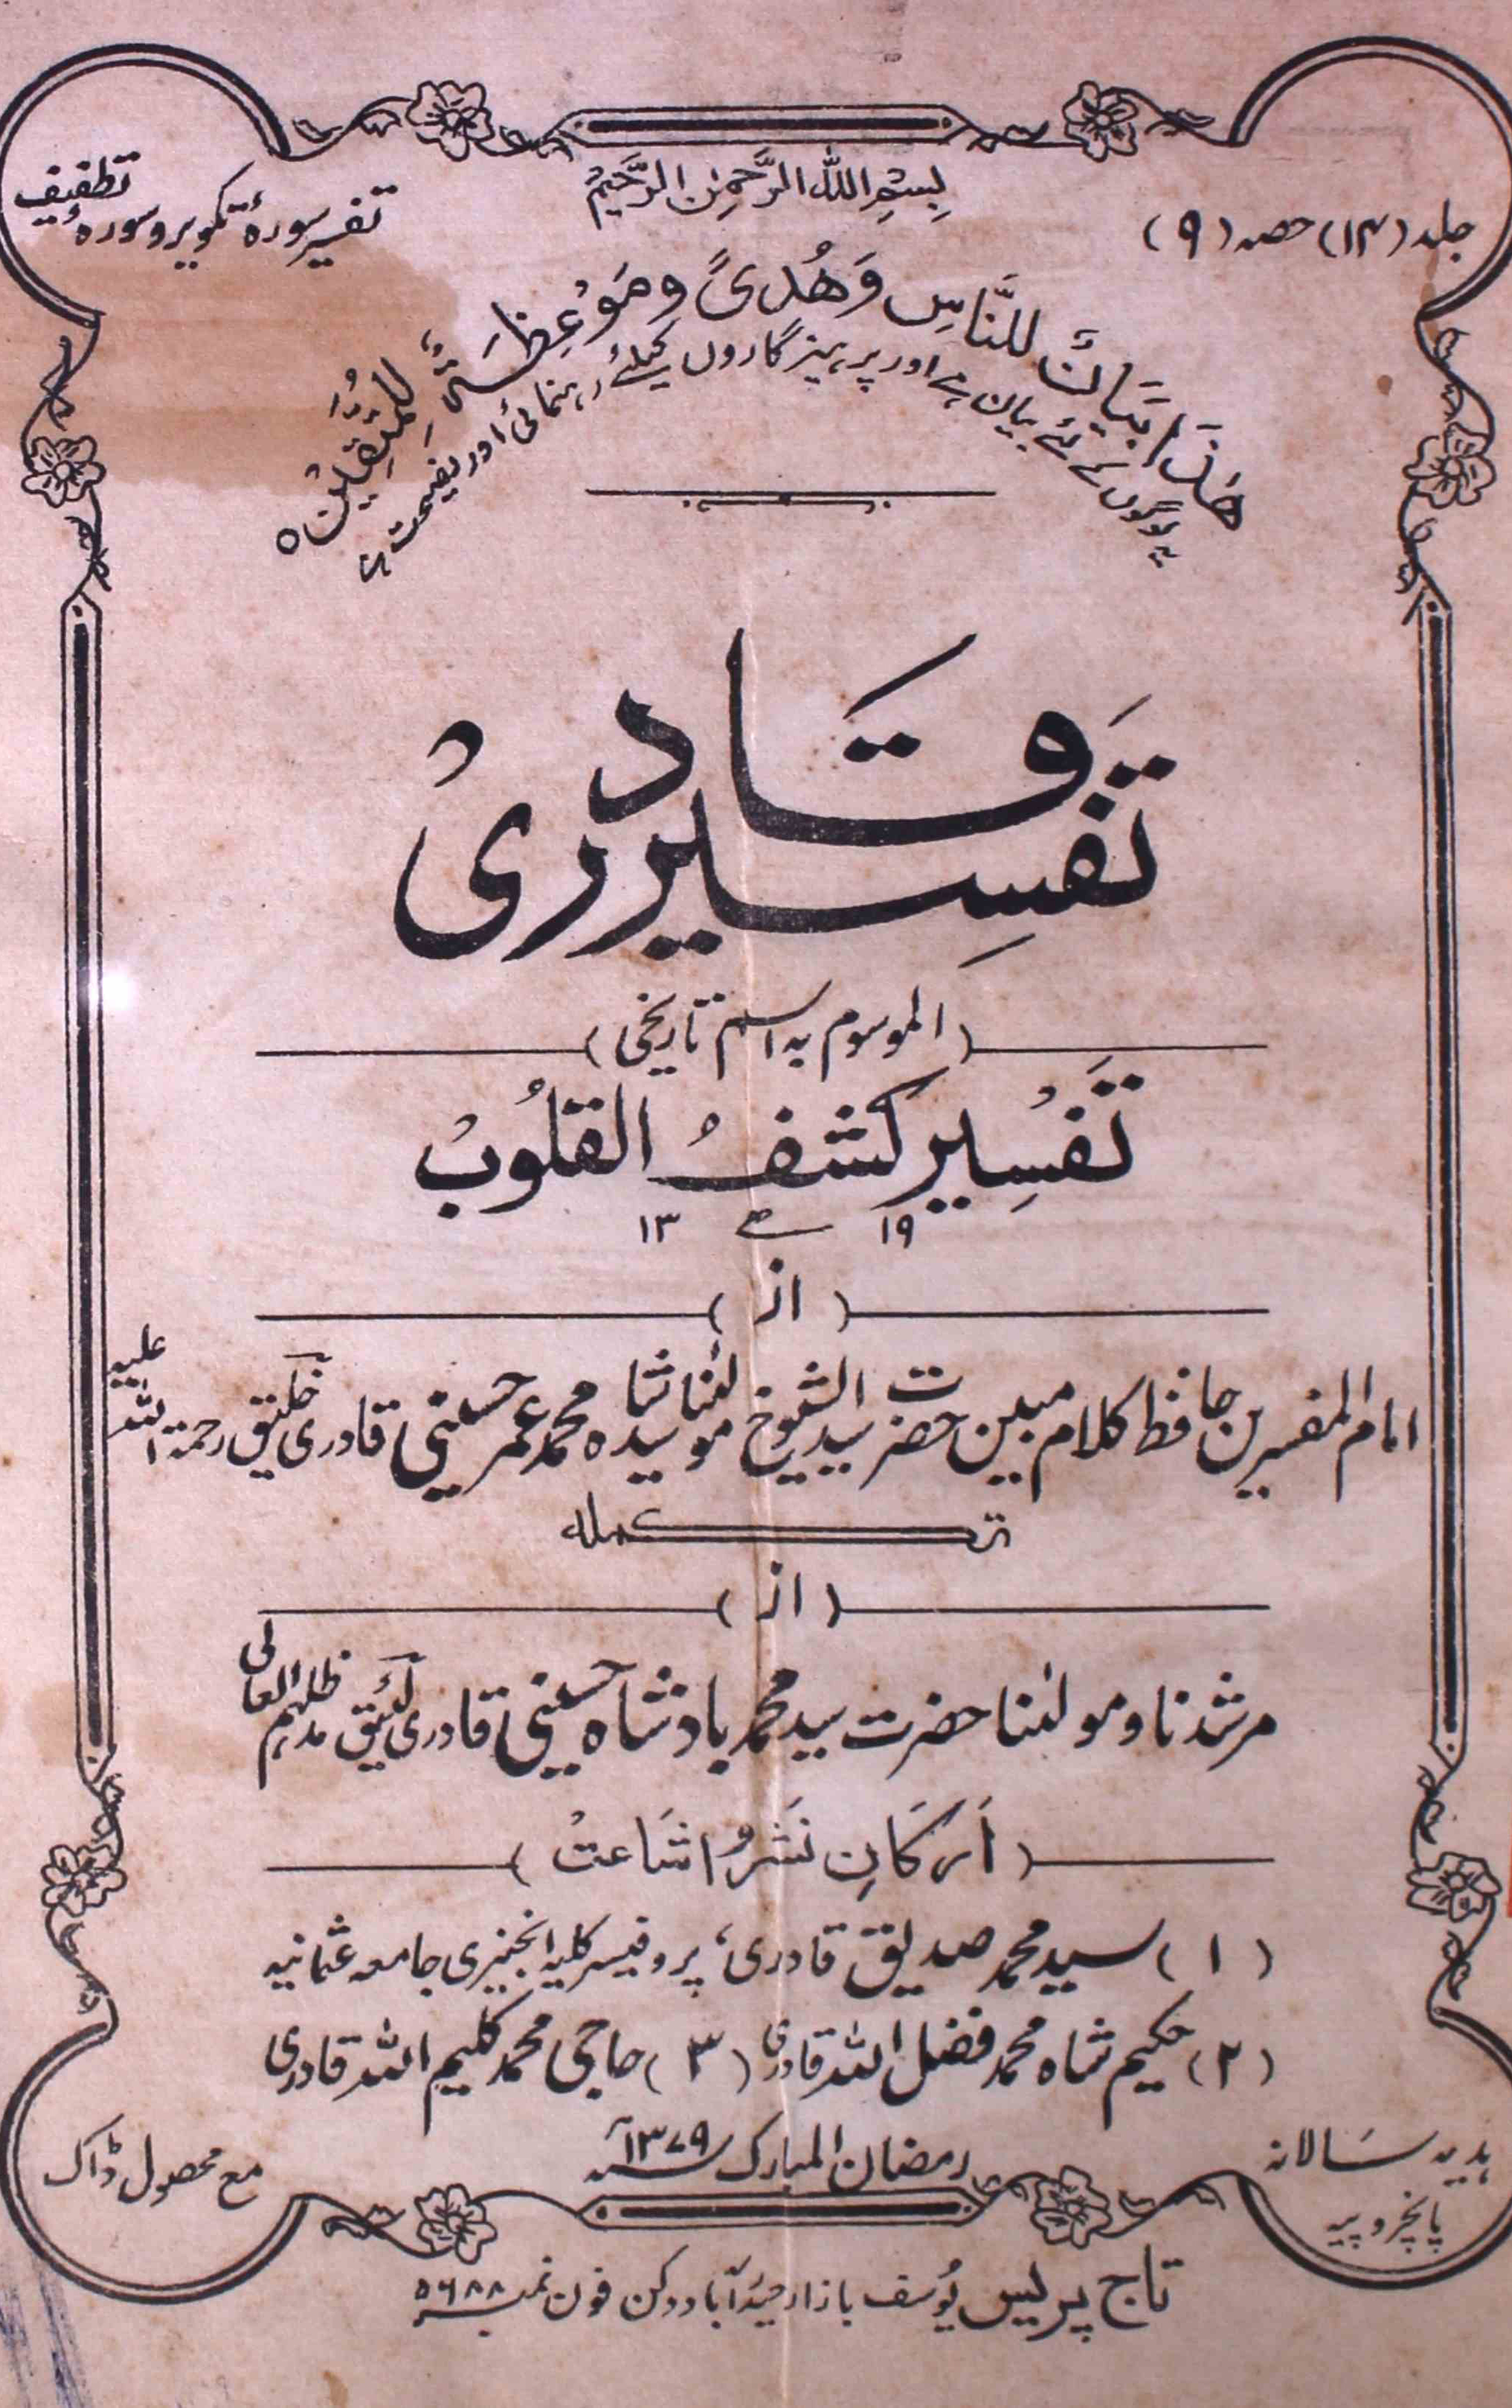 بِسْمِ اللهِ الرَّحْمٰنِ الرَّحِيْمْ
جلد (۱۴) حصہ (۹)
تفسیر سورۂ تکویر و سورۂ تطفیف
هٰذَا بَيَانٌ لِلنَّاسِ وَهُدًى وَمَوْعِظَةٌ لِلْمُتَّقِيْن ٥
یہ لوگوں کے لئے بیان ہے اور پرہیزگاروں کیلئے رہنمائی اور نصیحت
تفسیر قادری
(الموسوم بہ اسم تاریخی)
تَفْسِیر کشفُ القلُوبْ
۱۹ ھ ۱۳
(از)
امام المفسرین حافظ کلام مبین حضرت سید الشیوخ مولٰنا سید شاہ محمد عمر حسینی قادری خلیق رحمۃ اللہ علیہ
تکملہ
(از)
مرشدنا و مولٰنا حضرت سید محمد بادشاہ حسینی قادری لئیق مدظلہم العالی
(اَرکَانِ نَشْر و اشَاعتْ)
(۱) سید محمد صدیق قادری، پروفیسر کلیہ انجینیری جامعہ عثمانیہ
(۲) حکیم شاہ محمد فضل اللہ قادری (۳) حاجی محمد کلیم اللہ قادری
رمضان المبارک سنہ ۱۳۷۹
ہدیہ سالانہ
پانچروپیہ
مع محصول ڈاک
تاج پریس یُوسف بازار حیدرآباد دکن فون نمبر ۵۶۸۸